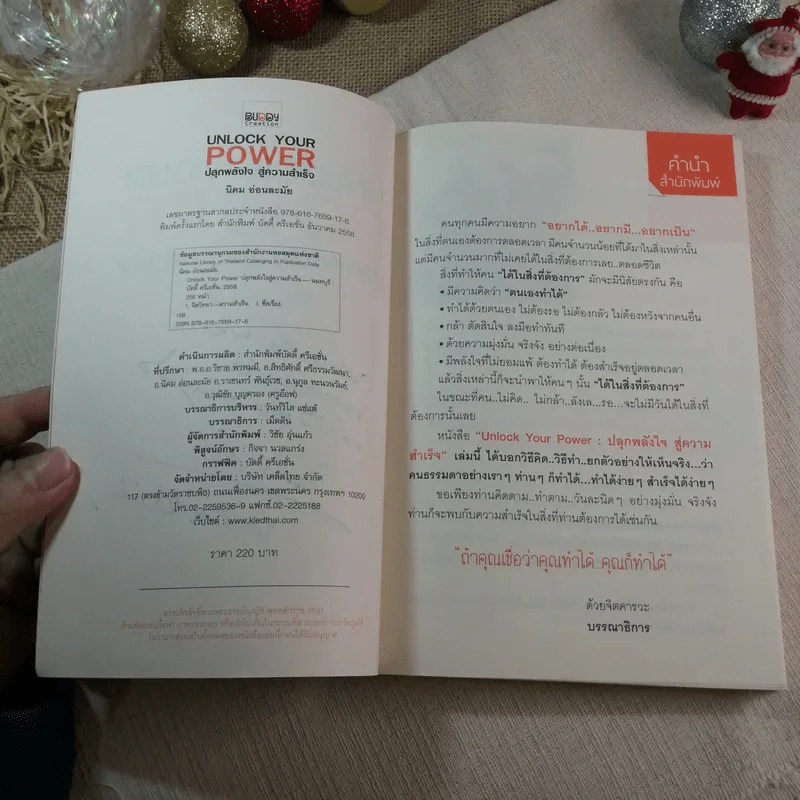 BUDDY
Creation
UNLOCK YOUR
POWER
ปลุกพลังใจ สู่ความสำเร็จ
นิคม อ่อนละมัย
เลขมาตรฐานสากลประจำหนังสือ 978-616-7659-17-6
พิมพ์ครั้งแรกโดย สำนักพิมพ์ บัดดี้ ครีเอชั่น ธันวาคม 2558
ข้อมูลบรรณานุกรมของสำนักงานหอสมุดแห่งชาติ
National Library of Thailand Cataloging in Publication Data
นิคม อ่อนละมัย.
Unlock Your Power ปลุกพลังใจสู่ความสำเร็จ.-- นนทบุรี :
บัดดี้ ครีเอชั่น, 2558.
256 หน้า.
1. จิตวิทยา--ความสำเร็จ. I. ชื่อเรื่อง.
158
ISBN 978-616-7659-17-6
ดำเนินการผลิต : สำนักพิมพ์บัดดี้ ครีเอชั่น
ที่ปรึกษา : พ.อ.อ.วิชาย พรหมมี, อ.สิทธิศักดิ์ ศรีธรรมวัฒนา,
อ.นิคม อ่อนละมัย อ.ราเชนทร์ พันธุ์เวช, อ.นุกูล ทะนวนรัมย์,
อ.วุฒิชัย บุญครอง (ครูอ๊อฟ)
บรรณาธิการบริหาร : วันทวิไล แซ่แต้
บรรณาธิการ : เม็ดดิน
ผู้จัดการสำนักพิมพ์ : วิชัย อุ่นแก้ว
พิสูจน์อักษร : กิจจา นวลแกร่ง
กราฟฟิค : บัดดี้ ครีเอชั่น
จัดจำหน่ายโดย : บริษัท เคล็ดไทย จำกัด
117 (ตรงข้ามวัดราชบพิธ) ถนนเฟื่องนคร เขตพระนคร กรุงเทพฯ 10200
โทร.02-2259536-9 แฟกซ์.02-2225188
เว็บไซต์ : www.kledthai.com
ราคา 220 บาท
คำนำ
สำนักพิมพ์
คนทุกคนมีความอยาก "อยากได้..อยากมี...อยากเป็น"
ในสิ่งที่ตนเองต้องการตลอดเวลา มีคนจำนวนน้อยที่ได้มาในสิ่งเหล่านั้น
แต่มีคนจำนวนมากที่ไม่เคยได้ในสิ่งที่ต้องการเลย..ตลอดชีวิต
สิ่งที่ทำให้คน "ได้ในสิ่งที่ต้องการ" มักจะมีนิสัยตรงกัน คือ
• มีความคิดว่า "ตนเองทำได้"
• ทำได้ด้วยตนเอง ไม่ต้องรอ ไม่ต้องกลัว ไม่ต้องหวังจากคนอื่น
• กล้า ตัดสินใจ ลงมือทำทันที
• ด้วยความมุ่งมั่น จริงจัง อย่างต่อเนื่อง
• มีพลังใจที่ไม่ยอมแพ้ ต้องทำได้ ต้องสำเร็จอยู่ตลอดเวลา
แล้วสิ่งเหล่านี้ก็จะนำพาให้คนๆ นั้น "ได้ในสิ่งที่ต้องการ"
ในขณะที่คน..ไม่คิด.. ไม่กล้า..ลังเล...รอ...จะไม่มีวันได้ในสิ่งที่
ต้องการนั้นเลย
หนังสือ "Unlock Your Power : ปลุกพลังใจ สู่ความ
สำเร็จ" เล่มนี้ ได้บอกวิธีคิด..วิธีทำ..ยกตัวอย่างให้เห็นจริง...ว่า
คนธรรมดาอย่างเราๆ ท่านๆ ก็ทำได้...ทำได้ง่ายๆ สำเร็จได้ง่ายๆ
ขอเพียงท่านคิดตาม..ทำตาม..วันละนิดๆ อย่างมุ่งมั่น จริงจัง
ท่านก็จะพบกับความสำเร็จในสิ่งที่ท่านต้องการได้เช่นกัน
"ถ้าคุณเชื่อว่าคุณทำได้ คุณก็ทำได้"
ด้วยจิตคารวะ
บรรณาธิการ